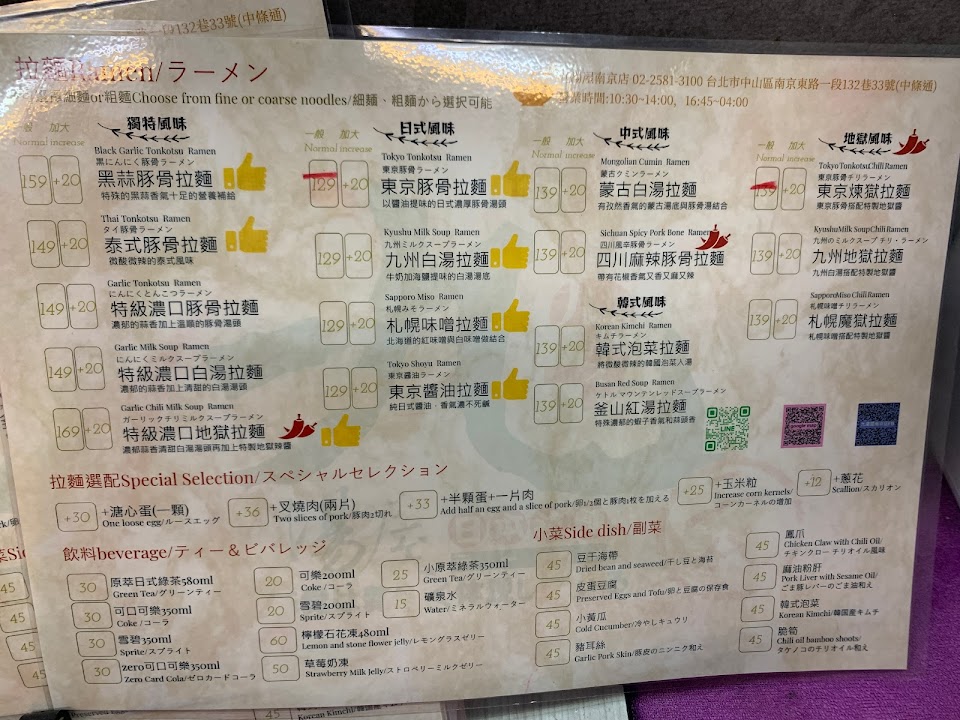 一段132巷33號(中條通)
拉麵Ramen/ラーメン
細麵or粗麵Choose from fine or coarse noodles/細麵、粗麵から選択可能
南京店 02-2581-3100 台北市中山區南京東路一段132巷33號(中條通)
營業時間:10:30~14:00, 16:45~04:00
一般 加大
Normal increase
獨特風味
159 +20
Black Garlic Tonkotsu Ramen
黒にんにく豚骨ラーメン
黑蒜豚骨拉麵
特殊的黑蒜香氣十足的營養補給
149 +20
Thai Tonkotsu Ramen
タイ豚骨ラーメン
泰式豚骨拉麵
微酸微辣的泰式風味
149 +20
Garlic Tonkotsu Ramen
にんにくとんこつラーメン
特級濃口豚骨拉麵
濃郁的蒜香加上溫順的豚骨湯頭
149 +20
Garlic Milk Soup Ramen
にんにくミルクスープラーメン
特級濃口白湯拉麵
濃郁的蒜香加上清甜的白湯湯頭
169 +20
Garlic Chili Milk Soup Ramen
ガーリックチリミルクスープラーメン
特級濃口地獄拉麵
濃郁蒜香清甜白湯湯頭再加上特製地獄辣醬
一般 加大
Normal increase
日式風味
129 +20
Tokyo Tonkotsu Ramen
東京豚骨ラーメン
東京豚骨拉麵
以醬油提味的日式濃厚豚骨湯頭
129 +20
Kyushu Milk Soup Ramen
九州ミルクスープラーメン
九州白湯拉麵
牛奶加海鹽提味的白湯湯底
129 +20
Sapporo Miso Ramen
札幌みそラーメン
札幌味噌拉麵
北海道的紅味噌與白味噌做結合
129 +20
Tokyo Shoyu Ramen
東京醬油ラーメン
東京醬油拉麵
純日式醬油,香氣濃不死鹹
一般 加大
Normal increase
中式風味
139 +20
Mongolian Cumin Ramen
蒙古クミンラーメン
蒙古白湯拉麵
有孜然香氣的蒙古湯底與豚骨湯結合
139 +20
Sichuan Spicy Pork Bone Ramen
四川風辛豚骨ラーメン
四川麻辣豚骨拉麵
帶有花椒香氣又香又麻又辣
韓式風味
139 +20
Korean Kimchi Ramen
キムチラーメン
韓式泡菜拉麵
將微酸微辣的韓國泡菜入湯
139 +20
Busan Red Soup Ramen
ケトル マウンテンレッドスープラーメン
釜山紅湯拉麵
特殊濃郁的蝦子香氣和蒜頭香
一般 加大
Normal increase
地獄風味
139 +20
Tokyo Tonkotsu Chili Ramen
東京豚骨チリラーメン
東京煉獄拉麵
東京豚骨搭配特製地獄醬
139 +20
Kyushu Milk Soup Chili Ramen
九州のミルクスープ チリ・ラーメン
九州地獄拉麵
九州白湯搭配特製地獄醬
139 +20
Sapporo Miso Chili Ramen
札幌味噌チリラーメン
札幌魔獄拉麵
札幌味噌搭配特製地獄醬
LINE
拉麵選配Special Selection/スペシャルセレクション
+30
+溏心蛋(一顆)
One loose egg/ルースエッグ
+36
+叉燒肉(兩片)
Two slices of pork/豚肉2切れ
+33
+半顆蛋+一片肉
Add half an egg and a slice of pork/卵1/2個と豚肉1枚を加える
+25
+玉米粒
Increase corn kernels/
コーンカーネルの増加
+12
+蔥花
Scallion/スカリオン
飲料beverage/ティー&ビバレッジ
30
原萃日式綠茶580ml
Green Tea/グリーンティー
30
可口可樂350ml
Coke/コーラ
30
雪碧350ml
Sprite/スプライト
30
zero可口可樂350ml
Zero Card Cola/ゼロカードコーラ
20
可樂200ml
Coke /コーラ
20
雪碧200ml
Sprite/スプライト
60
檸檬石花凍480ml
Lemon and stone flower jelly/レモングラスゼリー
50
草莓奶凍
Strawberry Milk Jelly/ストロベリーミルクゼリー
25
小原萃綠茶350ml
Green Tea/グリーンティー
15
礦泉水
Water/ミネラルウォーター
小菜Side dish/副菜
45
豆干海帶
Dried bean and seaweed/干し豆と海苔
45
皮蛋豆腐
Preserved Eggs and Tofu/卵と豆腐の保存食
45
小黃瓜
Cold Cucumber/冷やしキュウリ
45
豬耳絲
Garlic Pork Skin/豚皮のニンニク和え
45
鳳爪
Chicken Claw with Chili Oil/
チキンクロー チリオイル風味
45
麻油粉肝
Pork Liver with Sesame Oil/
ごま豚レバーのごま油和え
45
韓式泡菜
Korean Kimchi/韓国産キムチ
45
脆筍
Chili oil bamboo shoots/
タケノコのチリオイル和え
45
45
45
45
Korean Kimchi/